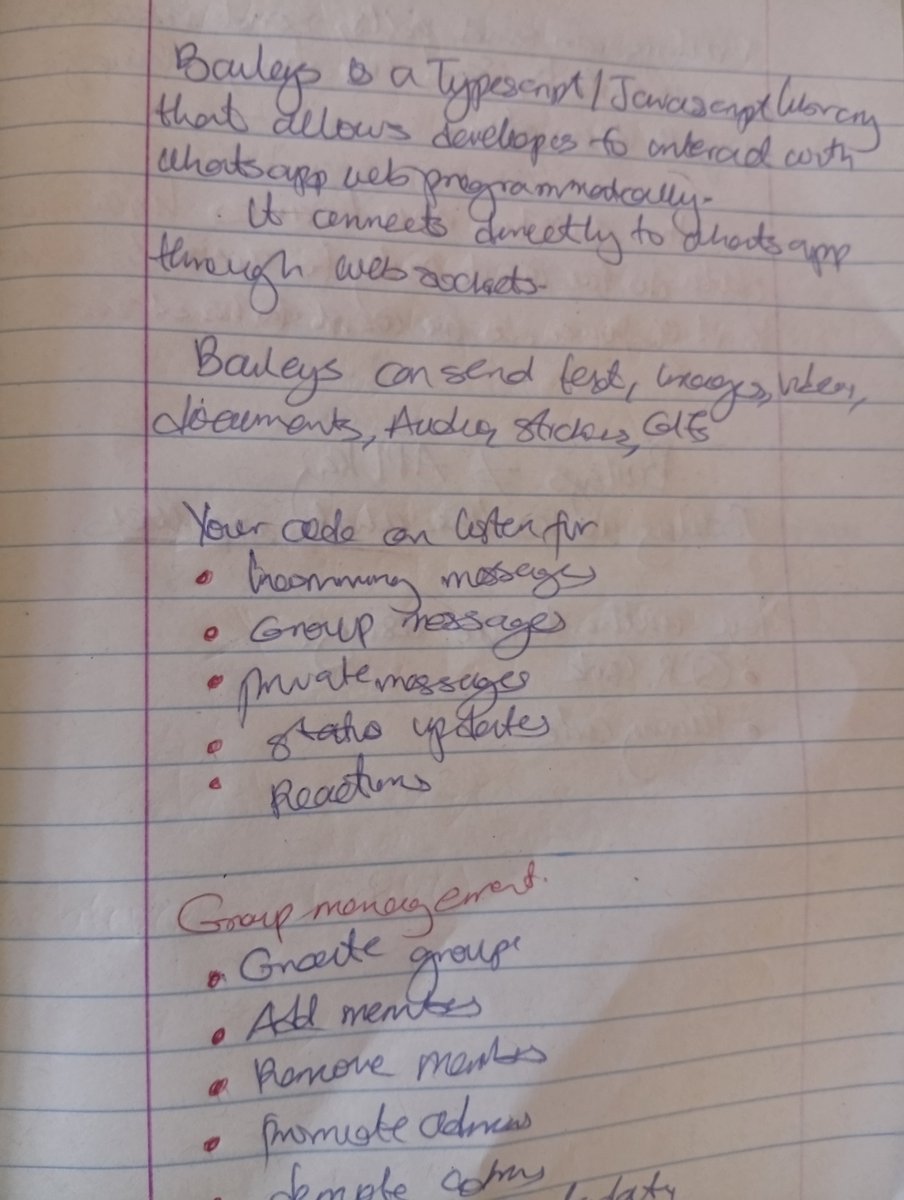 Baileys is a Typescript/Javascript library
that allows developes to interact with
whatsapp web programmatically.
It connects directly to whatsapp
through web sockets.
Baileys can send text, images, video,
documents, Audio, stickers, GIFs
Your code can listen for
• Incomming messages
• Group messages
• private messages
• status updates
• Reactions
Group management.
• Create groups
• Add members
• Remove members
• promote admins
demote admins